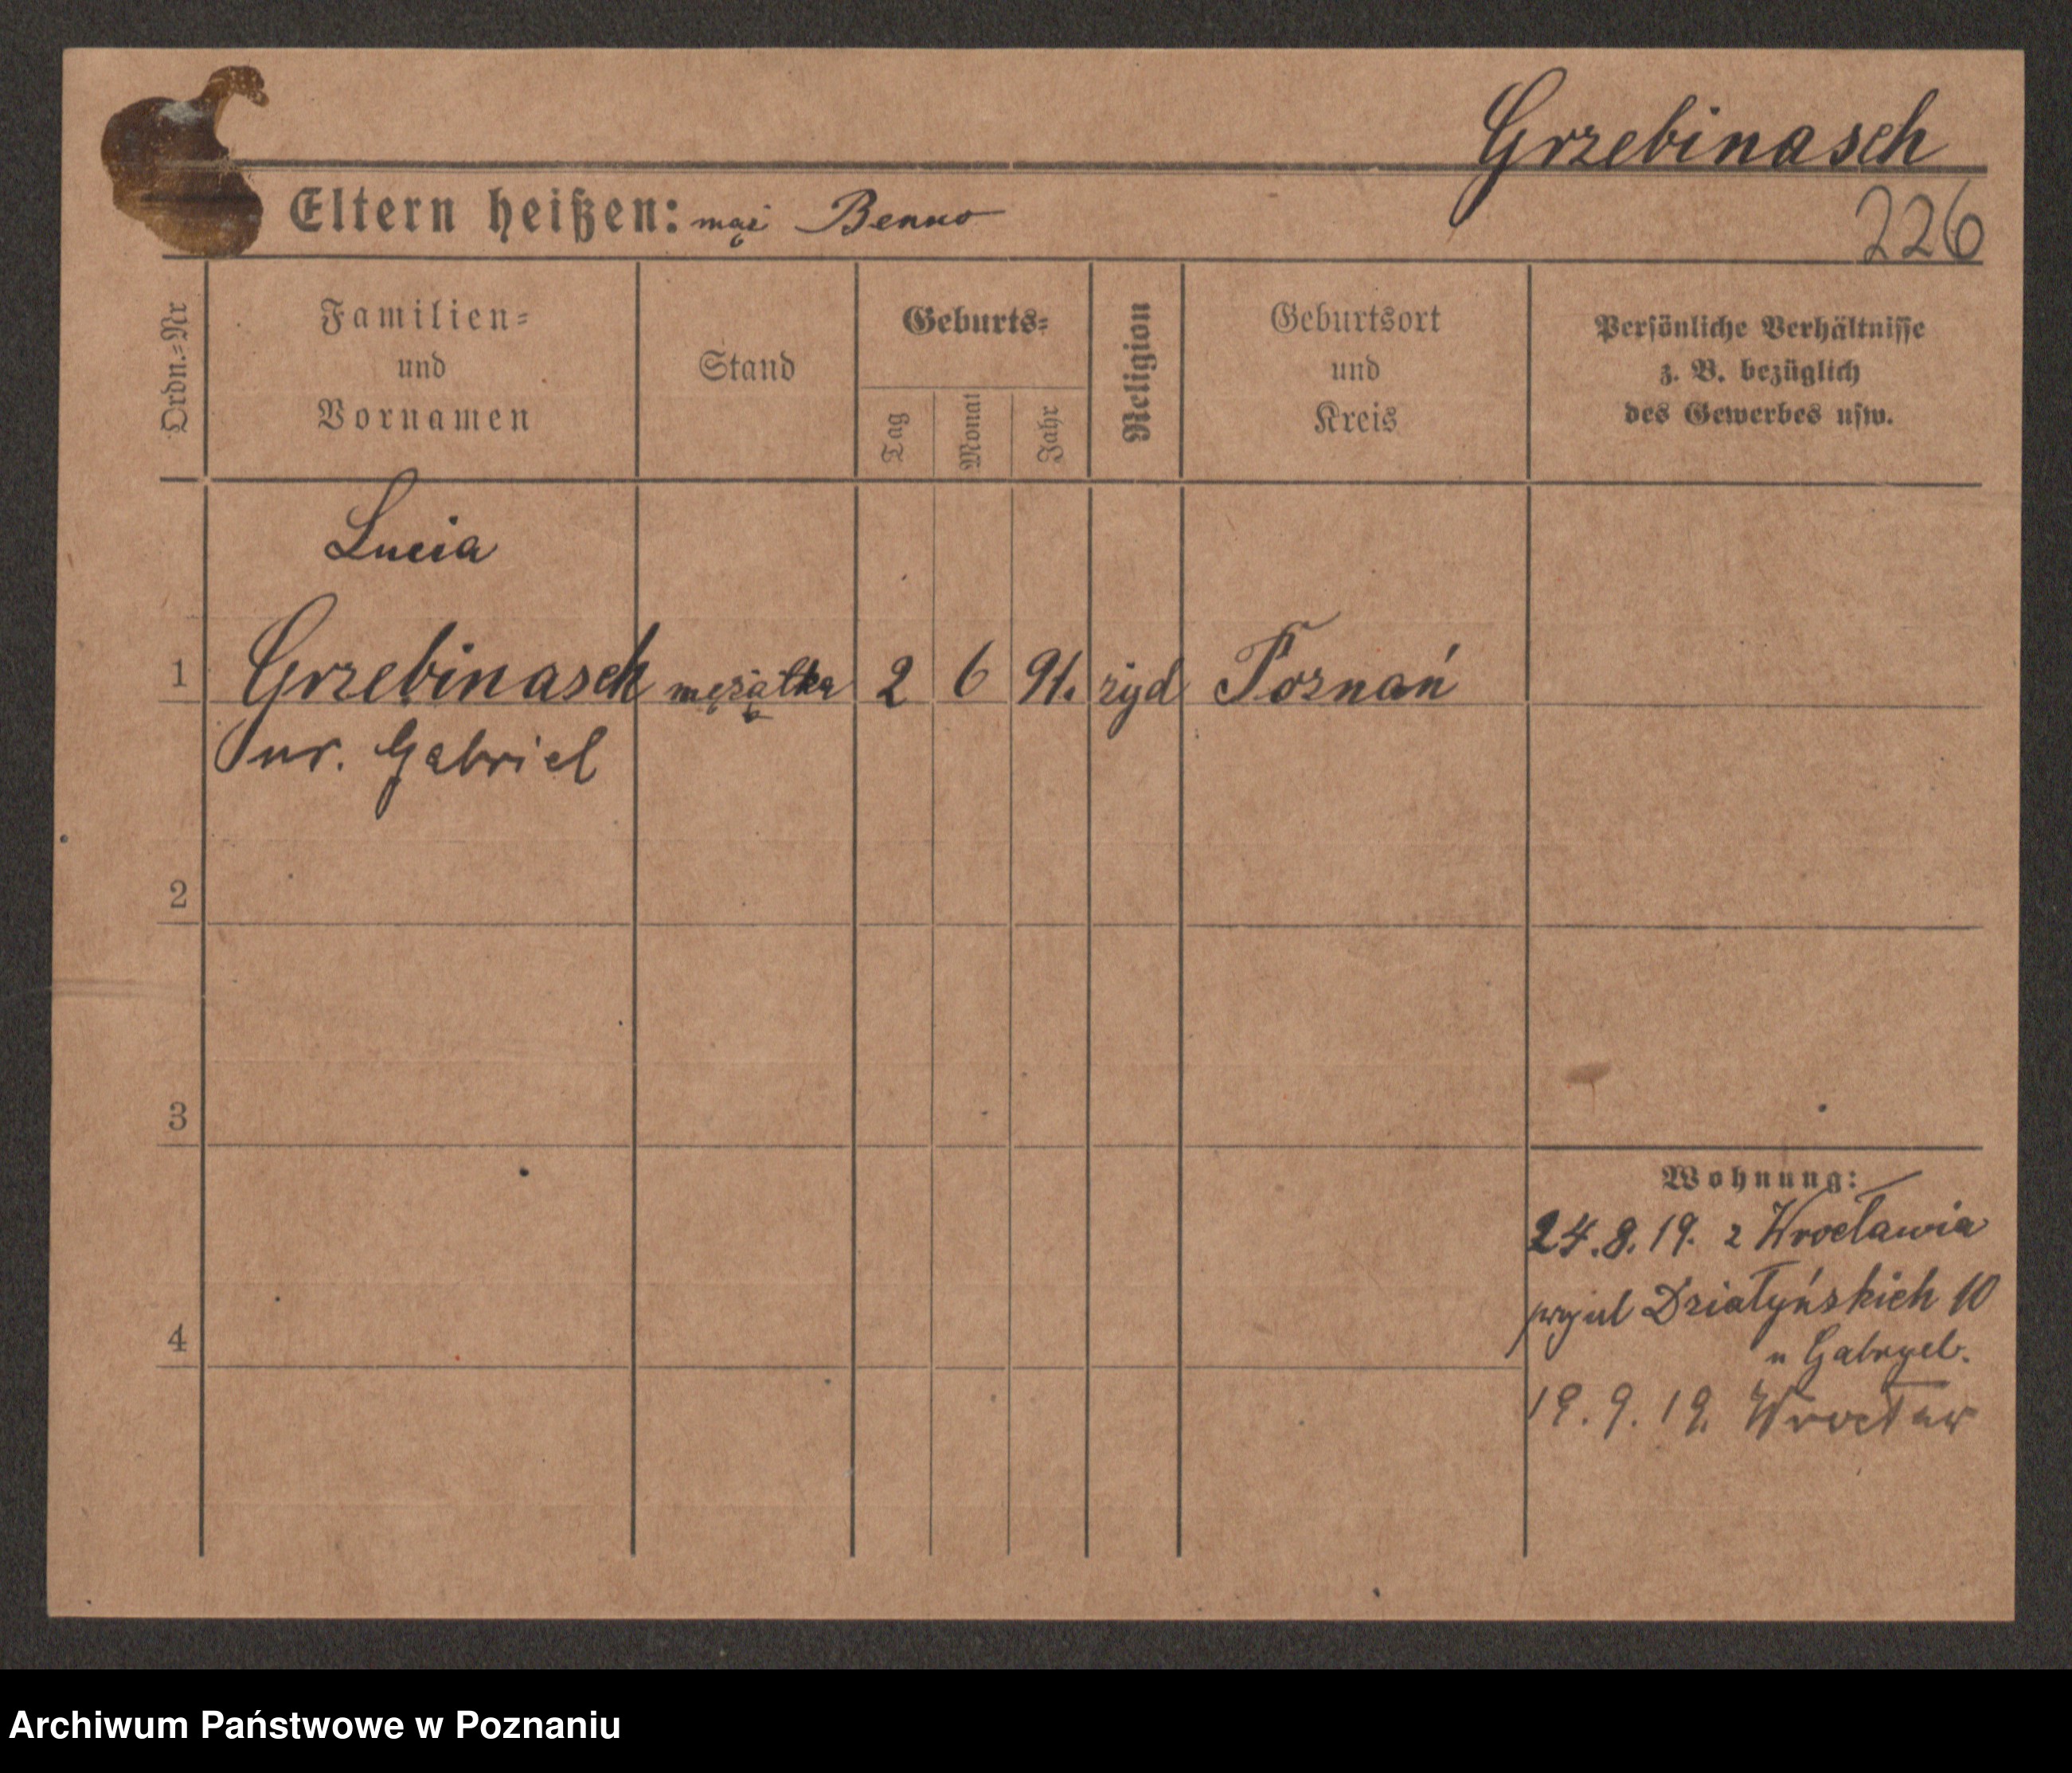 Grzebinasch
Eltern heißen: mąż Benno
226
Ordn.=Nr
Familien=
und
Vornamen
Stand
Geburts=
Tag
Monat
Jahr
Religion
Geburtsort
und
Kreis
Persönliche Verhältnisse
z. B. bezüglich
des Gewerbes usw.
Lucia
1 Grzebinasch mężatka 2 6 91. żyd Poznań
ur. Gabriel
2
3
Wohnung:
24.8.19. z Wrocławia
przy ul Działyńskich 10
4
u Gabryel.
19.9.19. Wrocław
Archiwum Państwowe w Poznaniu